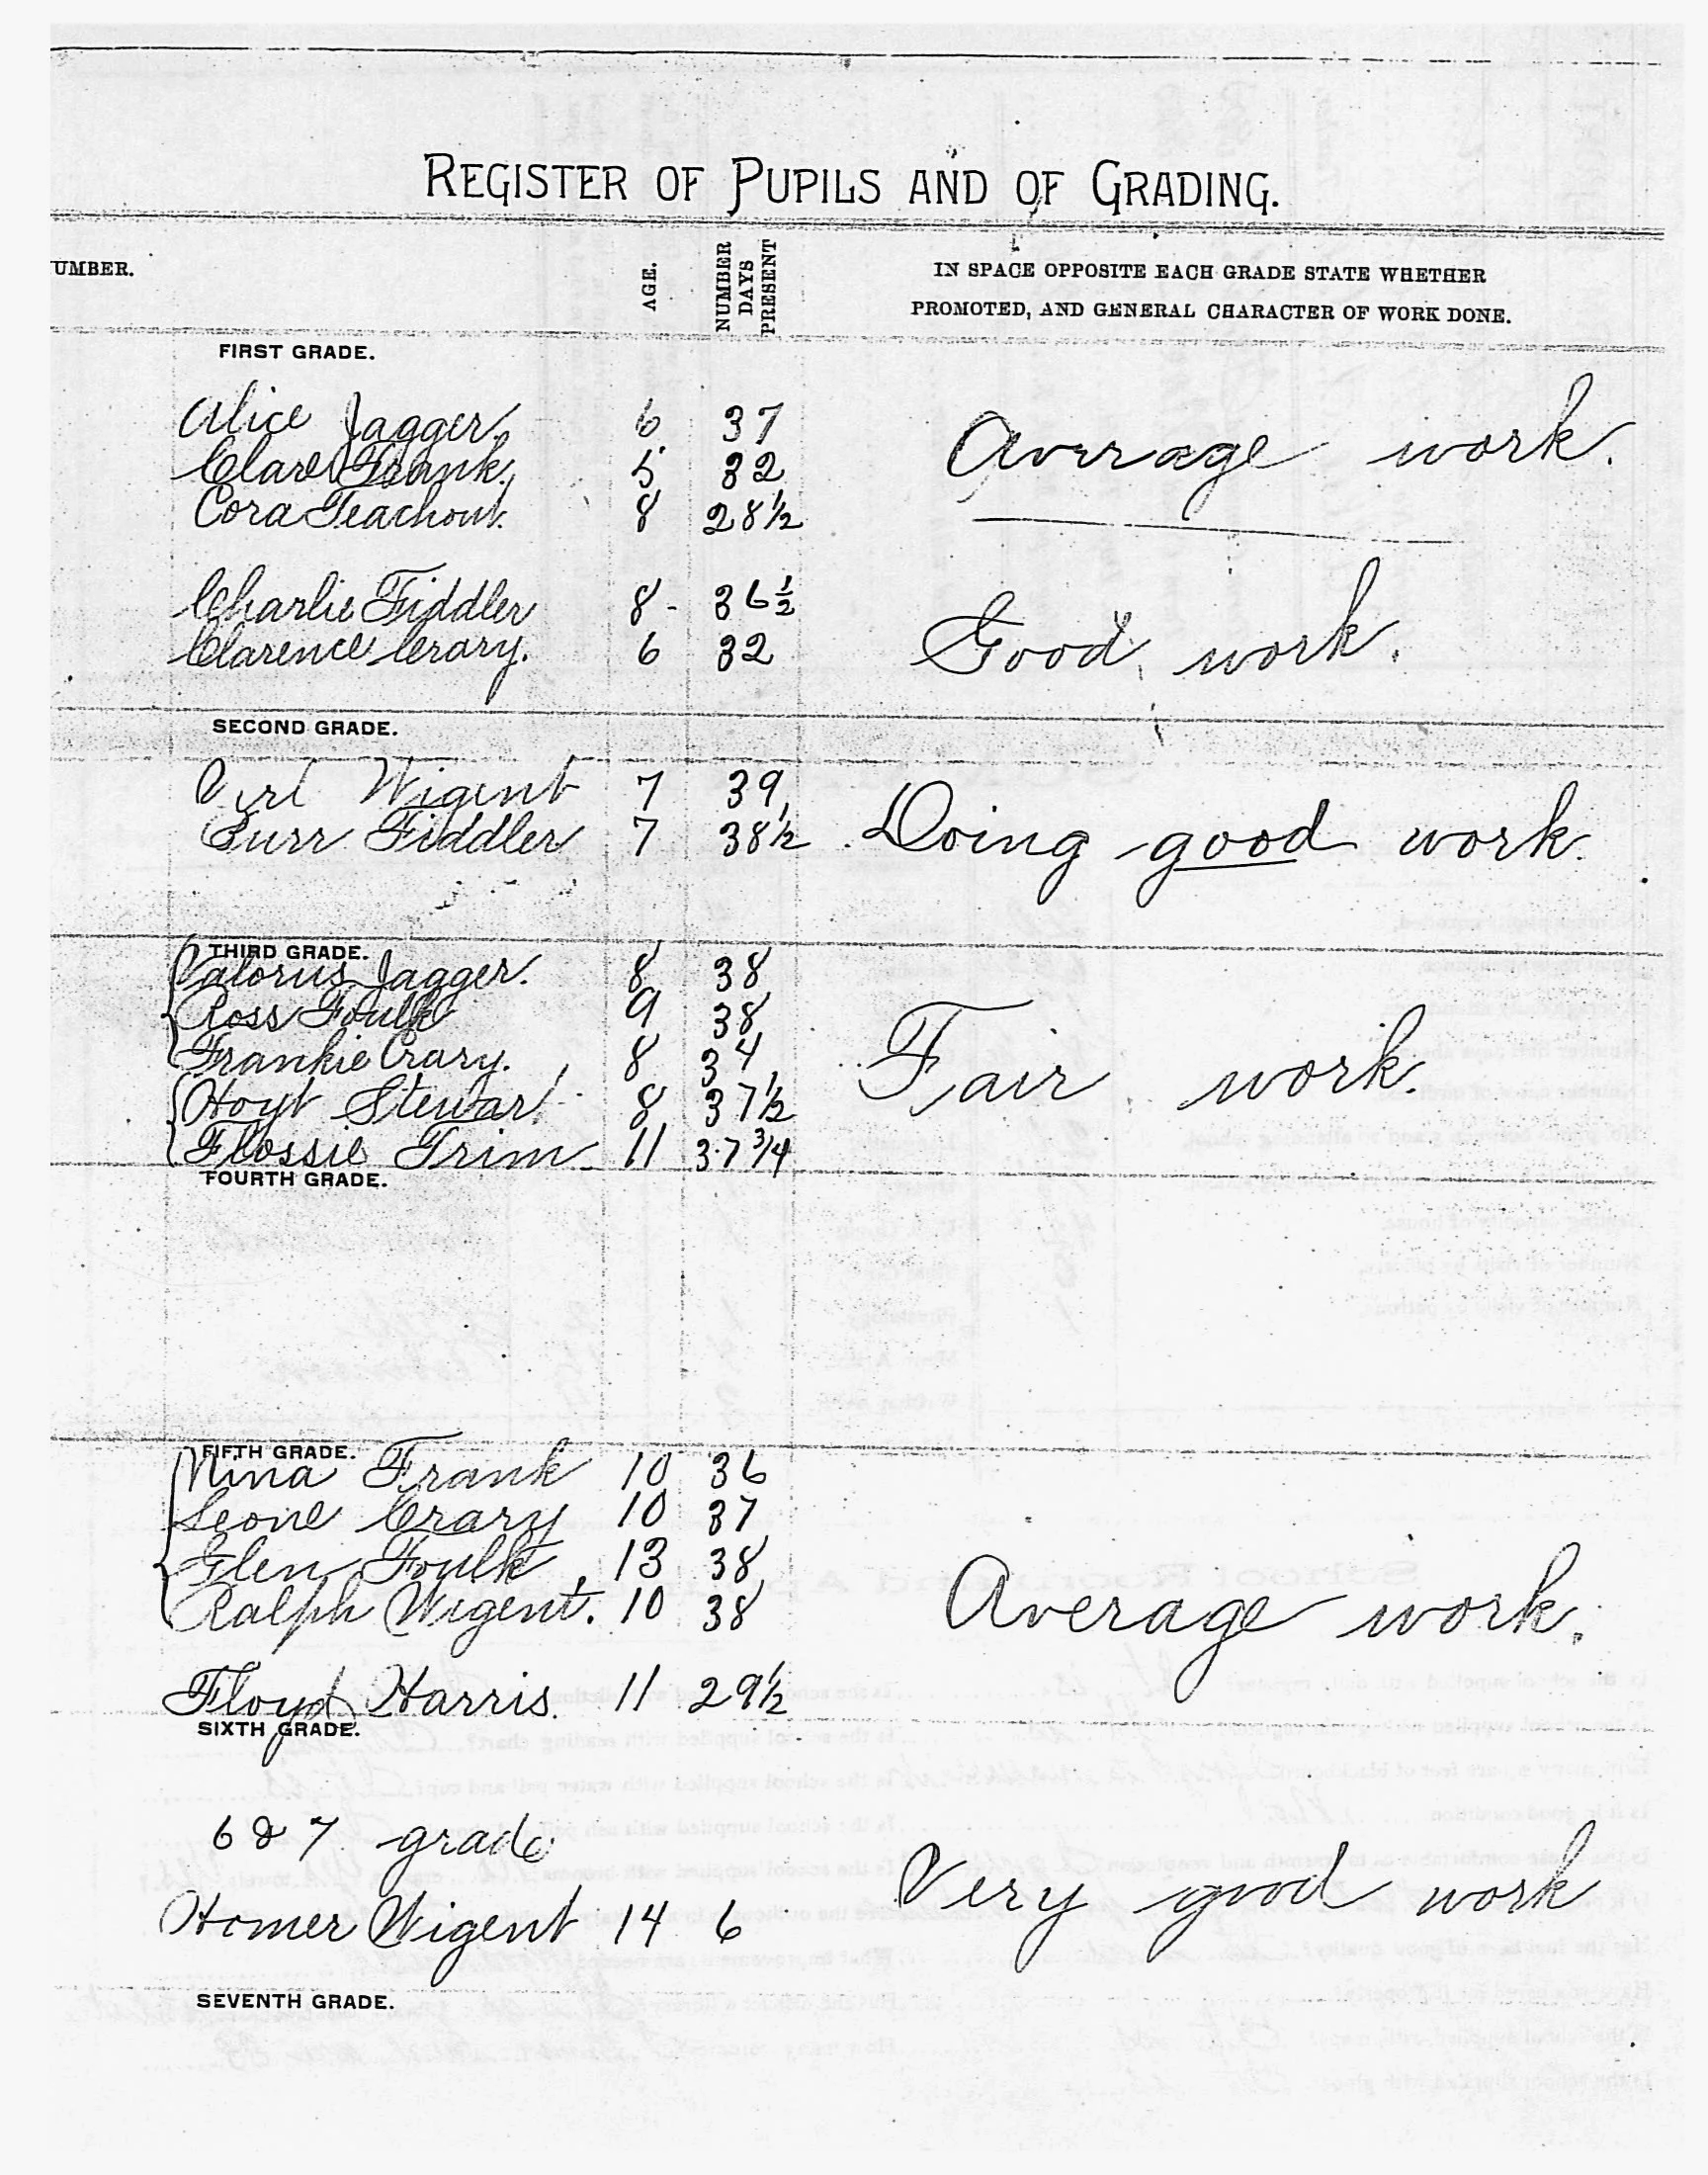 REGISTER OF PUPILS AND OF GRADING.
UMBER.
AGE.
NUMBER DAYS PRESENT
IN SPACE OPPOSITE EACH GRADE STATE WHETHER
PROMOTED, AND GENERAL CHARACTER OF WORK DONE.
FIRST GRADE.
Alice Jagger. 6 37 Average work.
Clare Frank. 5 32
Cora Teachout. 8 28 1/2
Charlie Fiddler 8 - 36 1/2 Good work.
Clarence Crary. 6 32
SECOND GRADE.
Verl Wigent 7 39
Burr Fiddler 7 38 1/2 Doing good work.
THIRD GRADE.
Valorus Jagger. 8 38
Ross Foulk 9 38
Frankie Crary. 8 34 Fair work.
Hoyt Stewart 8 37 1/2
Flossie Trim 11 37 3/4
FOURTH GRADE.
FIFTH GRADE.
Nina Frank 10 36
Leone Crary 10 37
Glen Foulk 13 38
Ralph Wigent. 10 38 Average work.
Floyd Harris. 11 29 1/2
SIXTH GRADE.
6 & 7 grade
Homer Wigent 14 6 Very good work
SEVENTH GRADE.